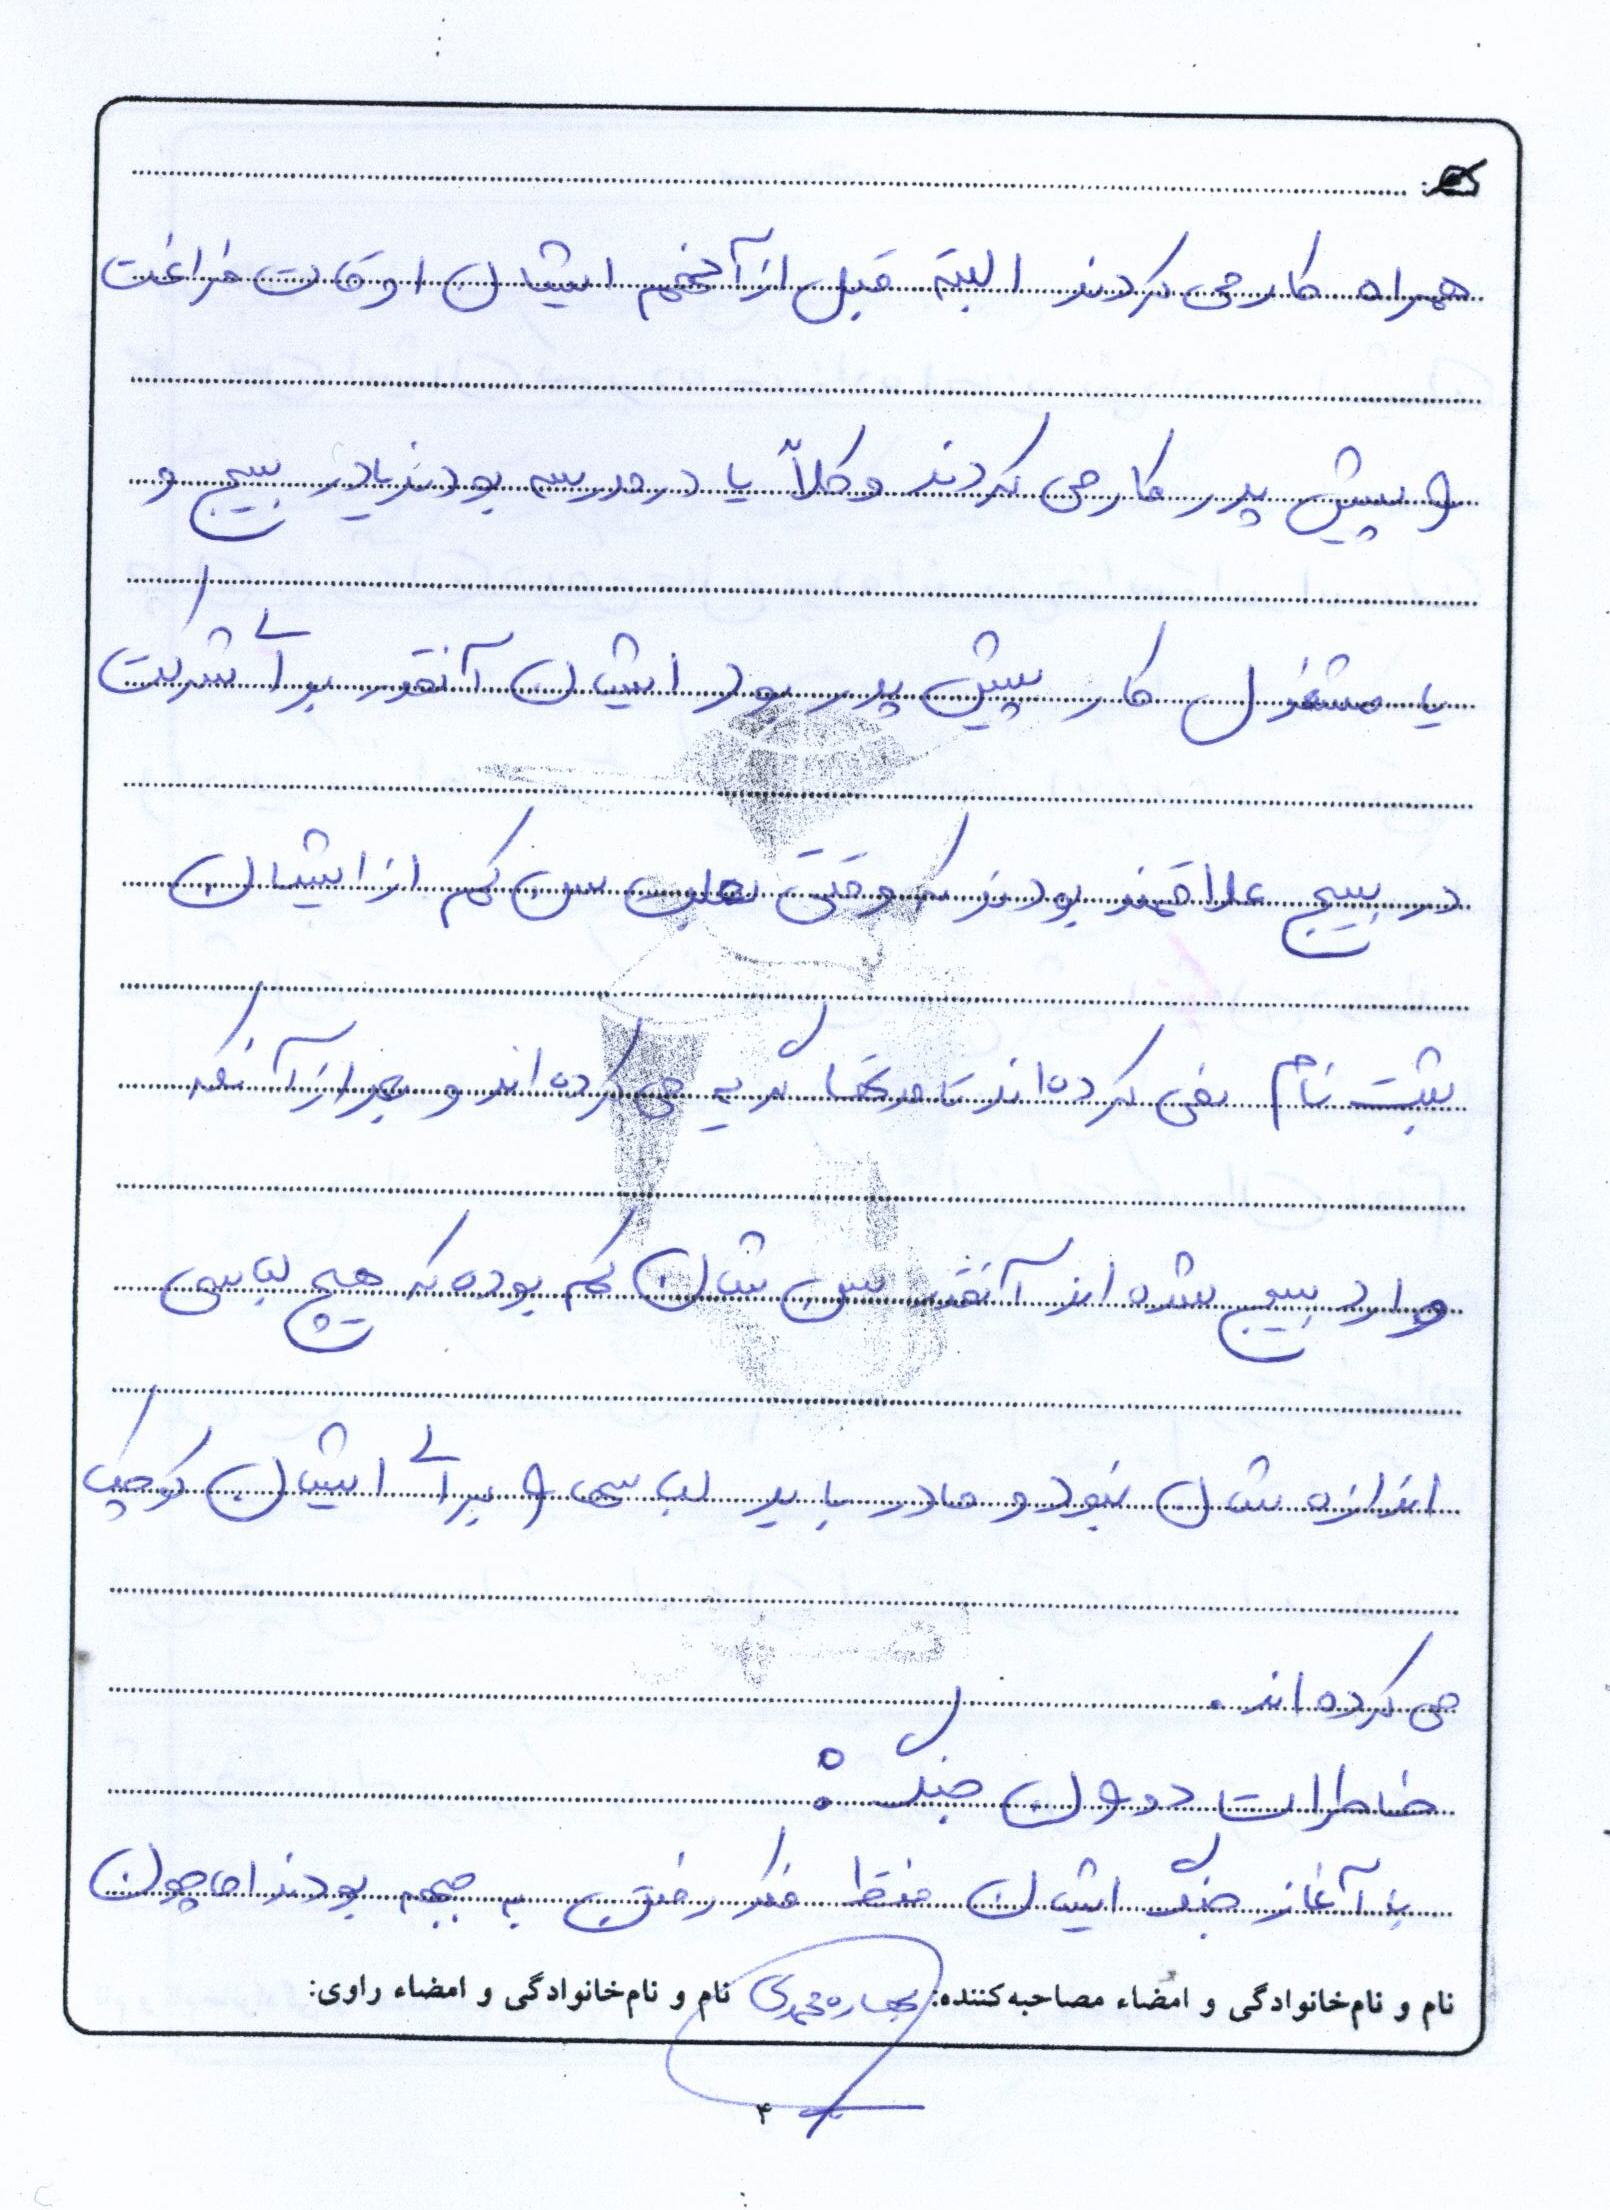 همراه کار می کردند البته قبل از آنهم ایشان اوقات فراغت
و پیش پدر کار می کردند و کلاً یا در مدرسه بودند یا در بسیج و
یا مشغول کار پیش پدر بود ایشان آنقدر برای شرکت
در بسیج علاقمند بودند که وقتی بعلت سن کم از ایشان
ثبت نام نفی کرده اند تا مدتها گریه می کرده اند و بعد از آنکه
وارد بسیج شده اند آنقدر سن شان کم بوده که هیچ لباسی
اندازه شان نبود و مادر باید لباسی و برای ایشان کوچک
می کرده اند.
خاطرات دوران جنگ:
با آغاز جنگ ایشان فقط فکر رفتن به جبهه بودند اما چون
نام و نام‌خانوادگی و امضاء مصاحبه‌کننده: بهاره محمدی نام و نام‌خانوادگی و امضاء راوی:
۴